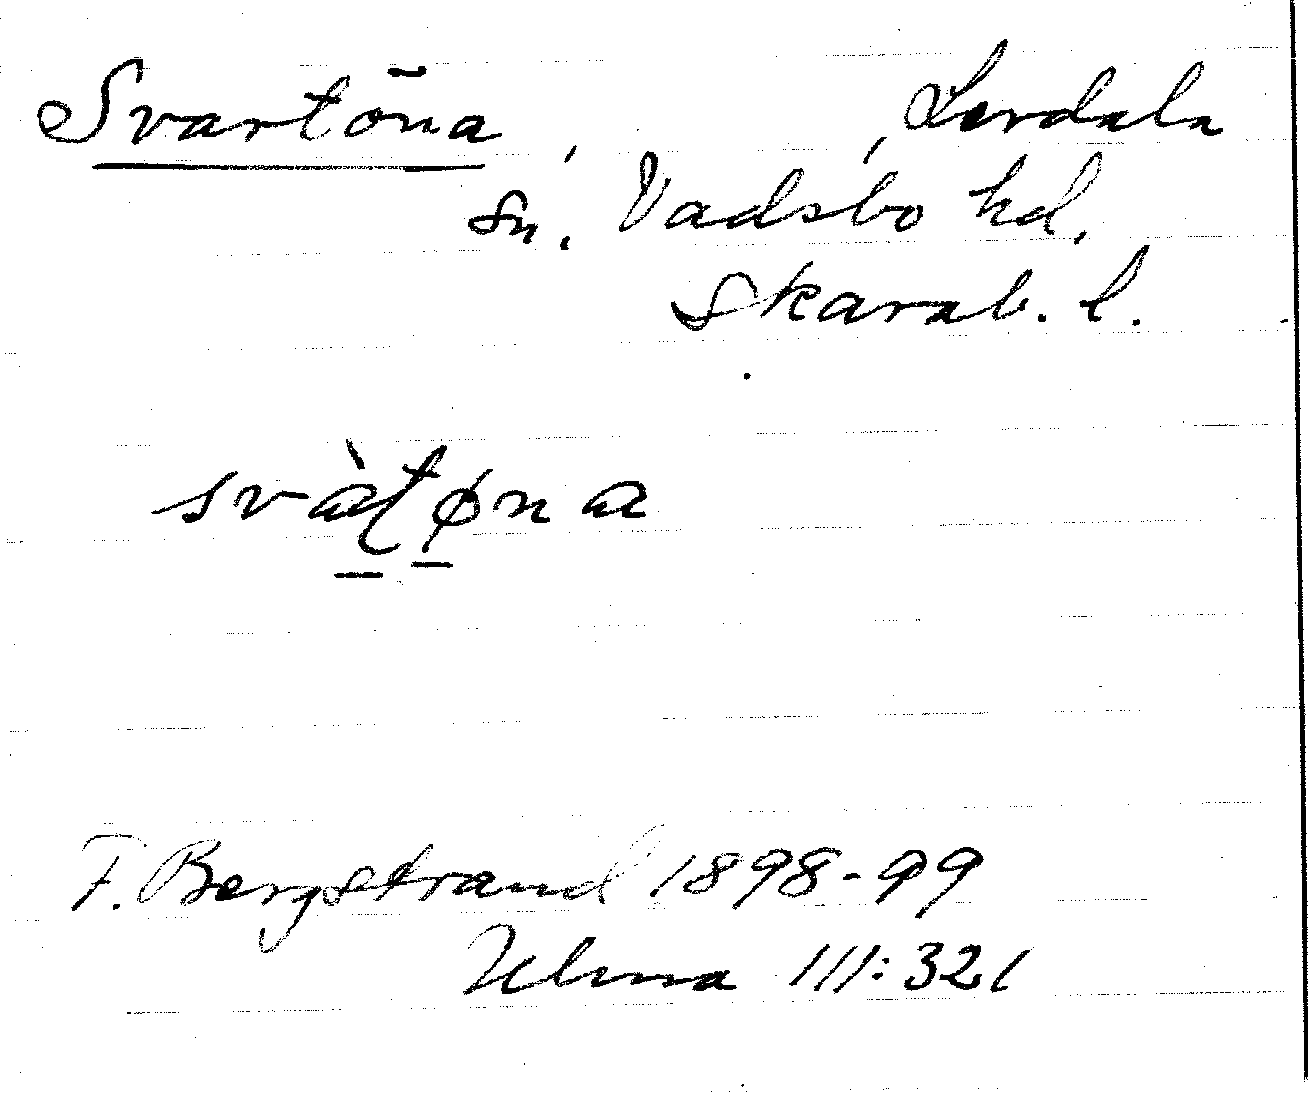 Svartöna, , Lerdala
sn. Vadsbo hd.
Skarab. l.
svàt̠ø̠na
F. Bergstrand 1898-99
Ulma 111:321